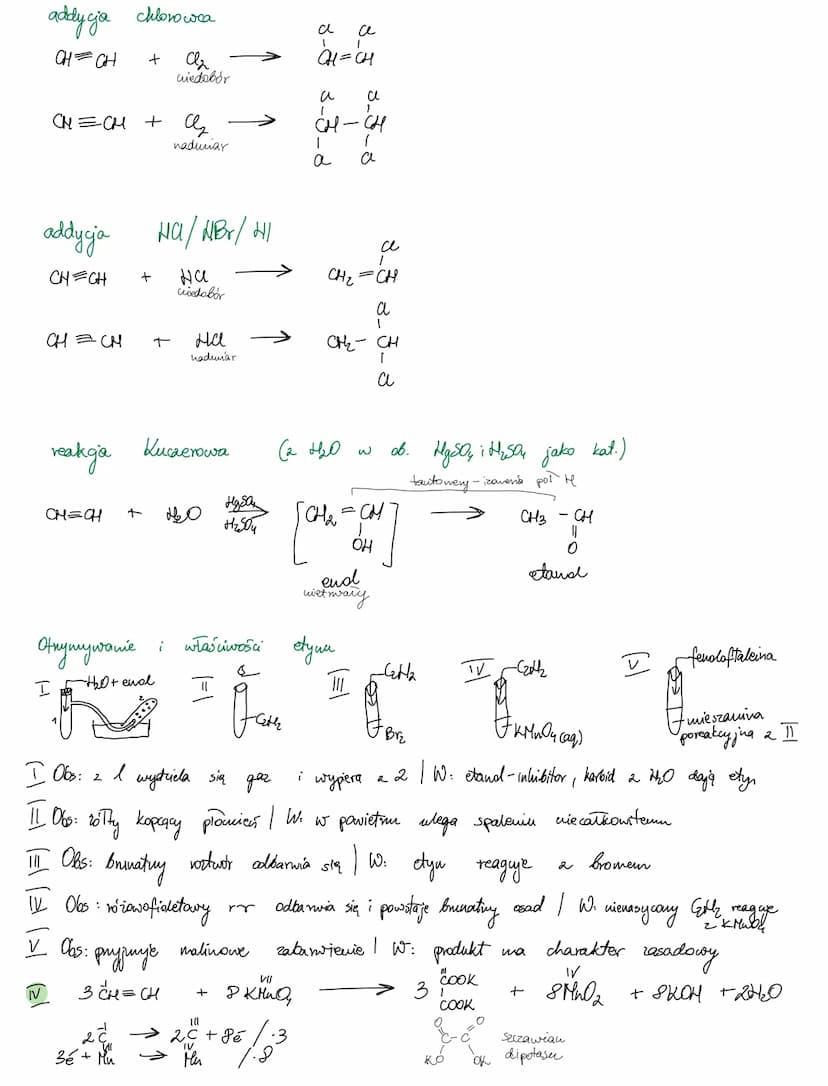 addycja chlorowca
Cl Cl
CH≡CH + Cl₂ ⟶ CH=CH
niedobór
Cl Cl
CH≡CH + Cl₂ ⟶ CH–CH
nadmiar
Cl Cl
addycja HCl/HBr/HI
Cl
CH≡CH + HCl ⟶ CH₂=CH
niedobór
Cl
CH≡CH + HCl ⟶ CH₂–CH
nadmiar
Cl
reakcja Kuczerowa (z H₂O w ob. HgSO₄ i H₂SO₄ jako kat.)
tautomery-izomeria poł H
CH≡CH + H₂O HgSO₄ H₂SO₄ ⟶ [CH₂=CH ⟶ CH₃–CH
OH O
enol etanal
nietrwały
Otrzymywanie i właściwości etynu
I H₂O+etanol 1 2
II C₂H₂
III C₂H₂ Br₂
IV C₂H₂ KMnO₄(aq)
V fenoloftaleina mieszanina poreakcyjna z II
I Obs: z 1 wydziela się gaz i wypiera z 2 | W: etanol-inhibitor, karbid z H₂O dają etyn
II Obs: żółty kopcący płomień | W: w powietrzu ulega spaleniu niecałkowitemu
III Obs: brunatny roztwór odbarwia się | W: etyn reaguje z bromem
IV Obs: różowofioletowy r-r odbarwia się i powstaje brunatny osad | W: nienasycony C₂H₂ reaguje z KMnO₄
V Obs: przyjmuje malinowe zabarwienie | W: produkt ma charakter zasadowy
IV 3CH≡CH + 8KMnO₄ ⟶ 3 COOK COOK + 8MnO₂ + 8KOH + 2H₂O
-I VII III IV
2C ⟶ 2C + 8e /·3
3e + Mn ⟶ Mn /·8
O O
C–C
KO OK
szczawian
dipotasu